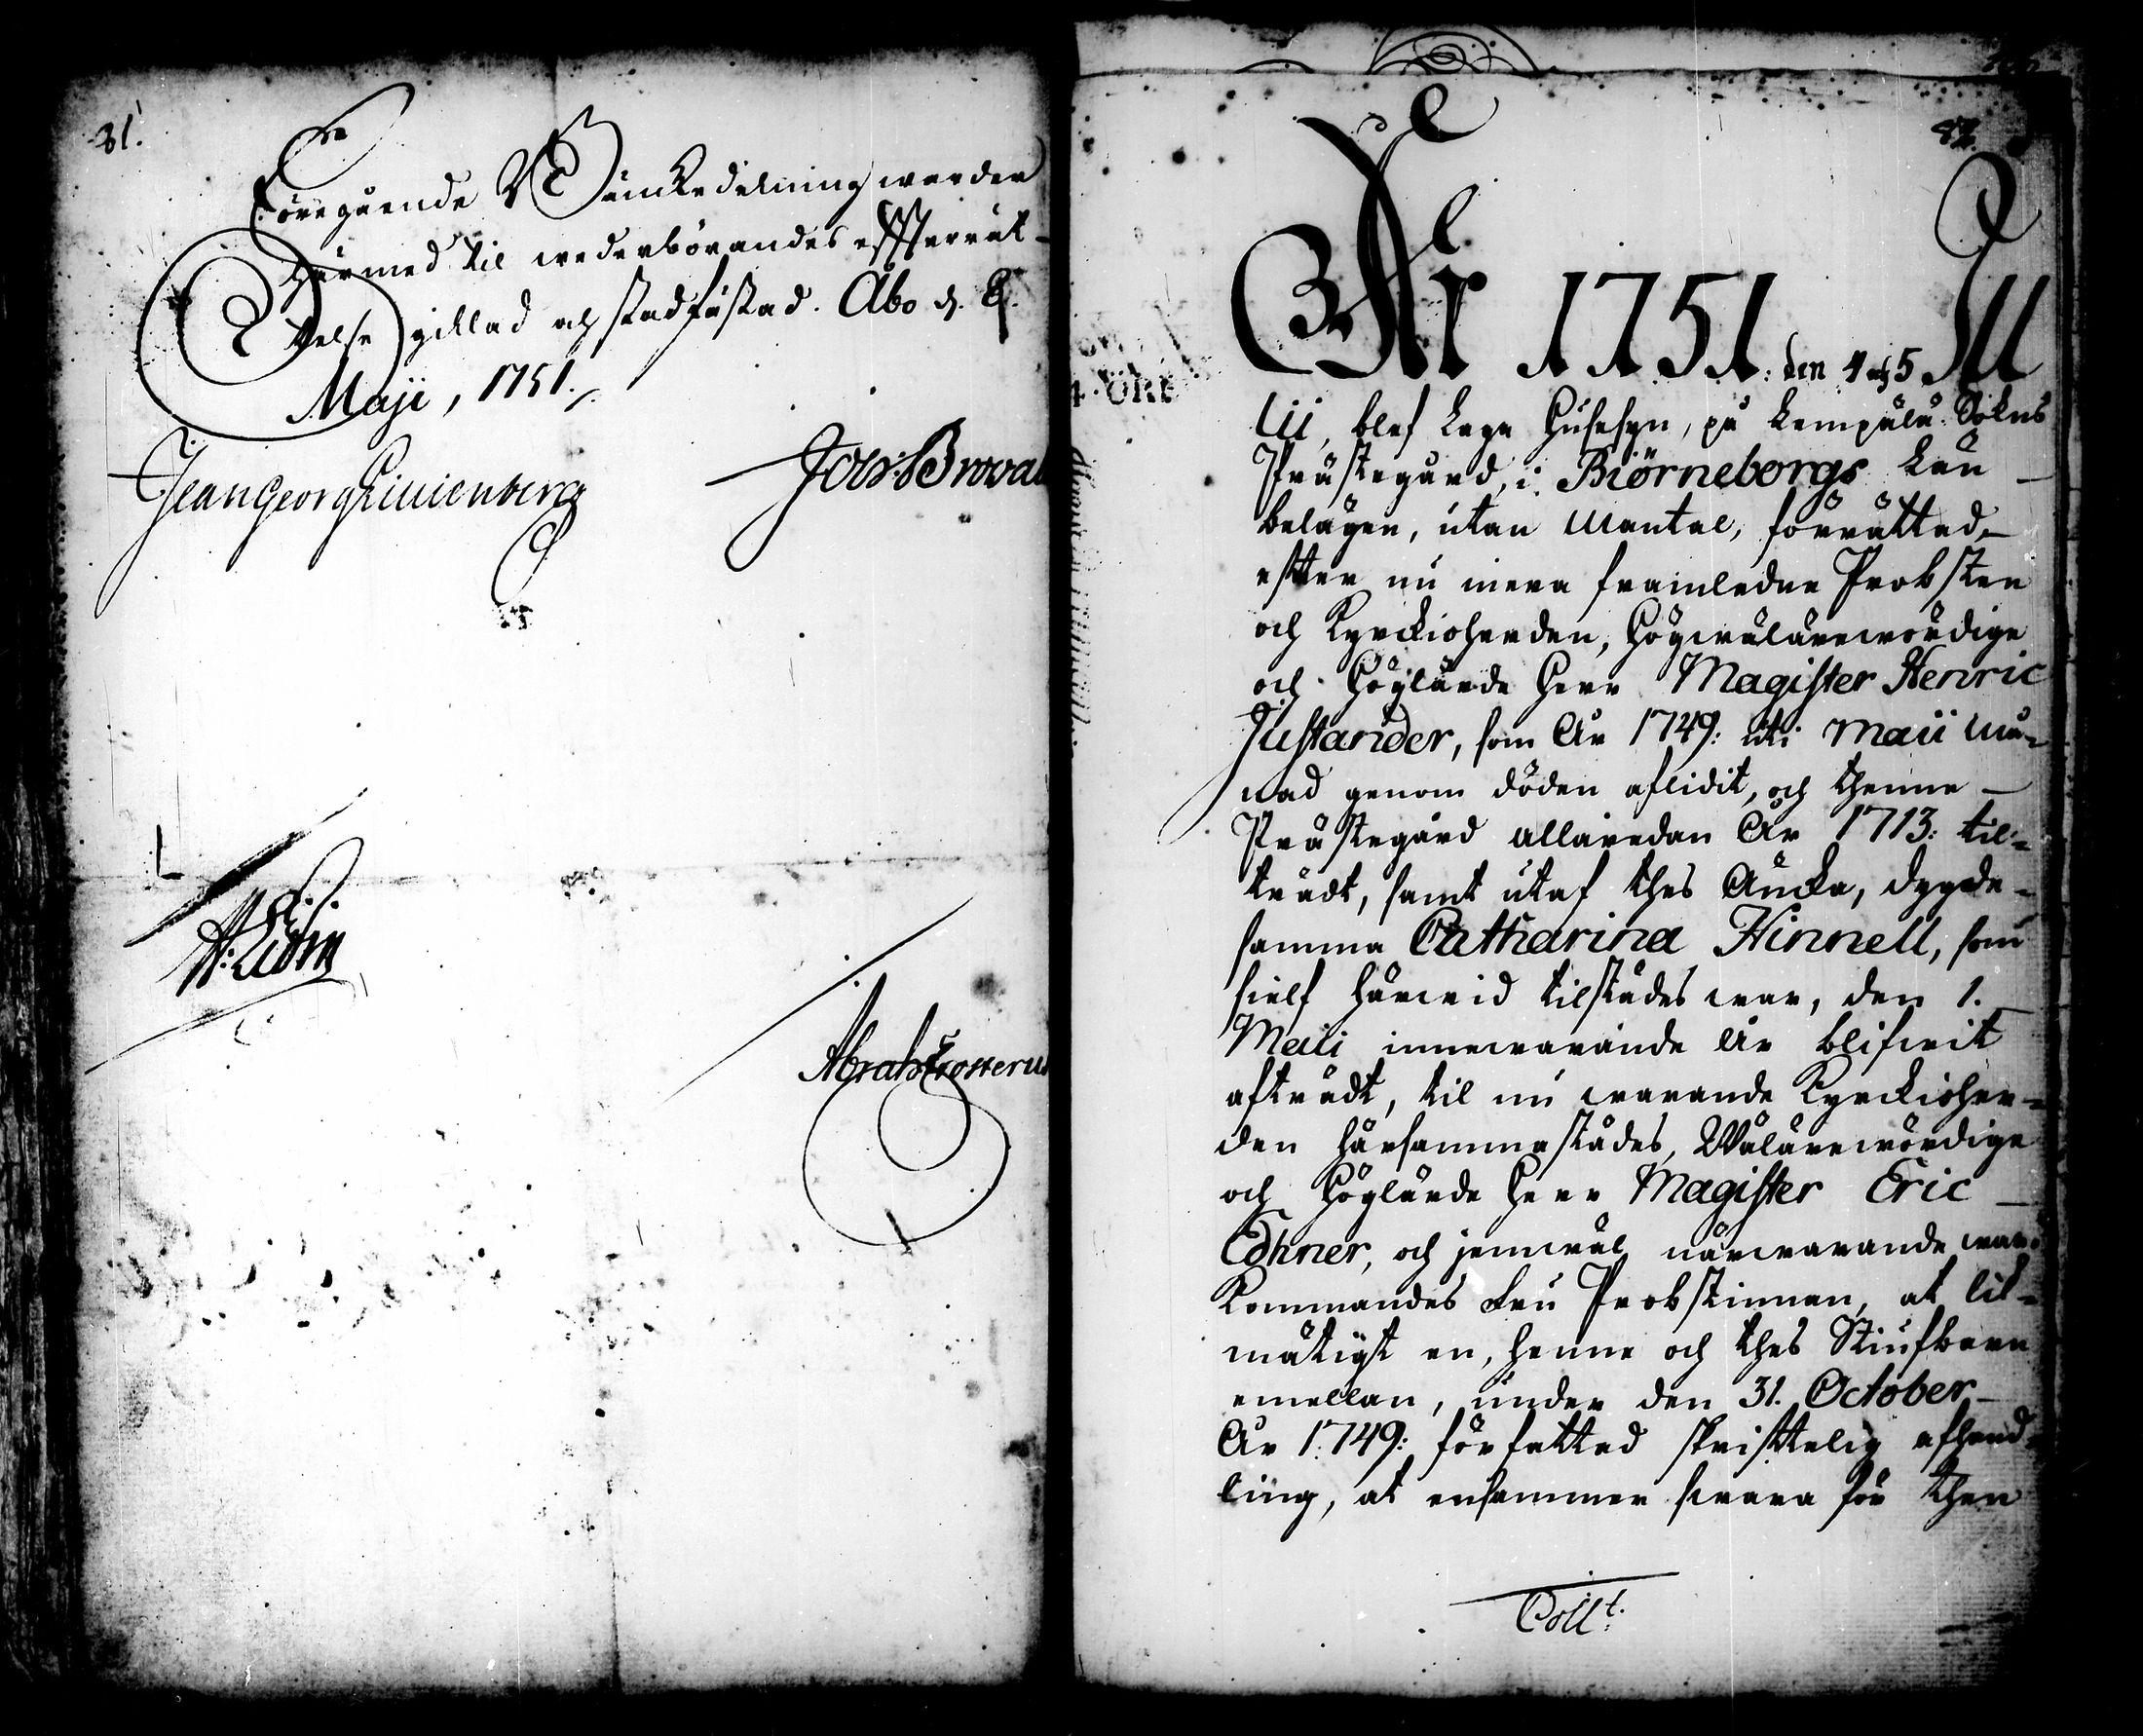 81.
Föregående Bänkedelning warder
härmed til wederbörandes effterrät-
telse gillad och stadfästad. Åbo d.
Maji, 1751.
Jean Georg Lillienberg
Joh: Browal
82.
År 1751. den 4 och 5 Ju
lii, blef Laga Huusesyn, på Lempälä Sokns
Prästegård, i Biörneborgs Län
belägen, utan Mantal, förrättad,
effter nu mera framledne Probsten
och Kyrckioherden, Högwälärewördige
och Höglärde Herr Magister Henric
Justander, som År 1749: uti Maii Må-
nad genom döden aflidit, och thenne
Prästegård allaredan År 1713: til-
trädt, samt utaf thes Äncka, dygde-
samma Catharina Hinnell, som
sielf härwid tilstädes war, den 1.
Maii innewarande År blifwit
afträdt, til nu warande Kyrckioher-
den härsammastädes, Wälärewördige
och Höglärde Herr Magister Eric
Edhner, och jemwäl närwarande war.
Kommandes Fru Probstinnan, at lik-
mätigt en, henne och thes Stiufbarn
emellan, under den 31. October
År 1749: författad skrifftelig afhand-
ling, at ensammen swara för then
Coll.t